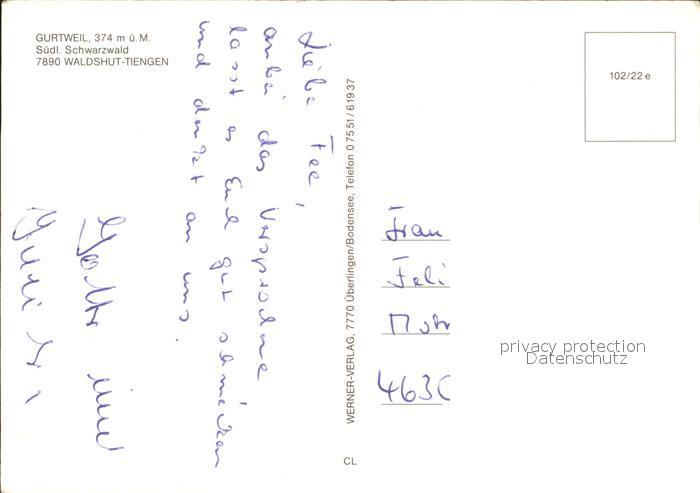 GURTWEIL, 374 m ü. M.
Südl. Schwarzwald
7890 WALDSHUT-TIENGEN
Liebe Fee,
anbei das Versprochene
lasst es Euch gut schmecken
und denkt an uns.
WERNER-VERLAG, 7770 Überlingen/Bodensee, Telefon 0 75 51 / 6 19 37
102/22 e
Frau
Feli
463
privacy protection
Datenschutz
CL